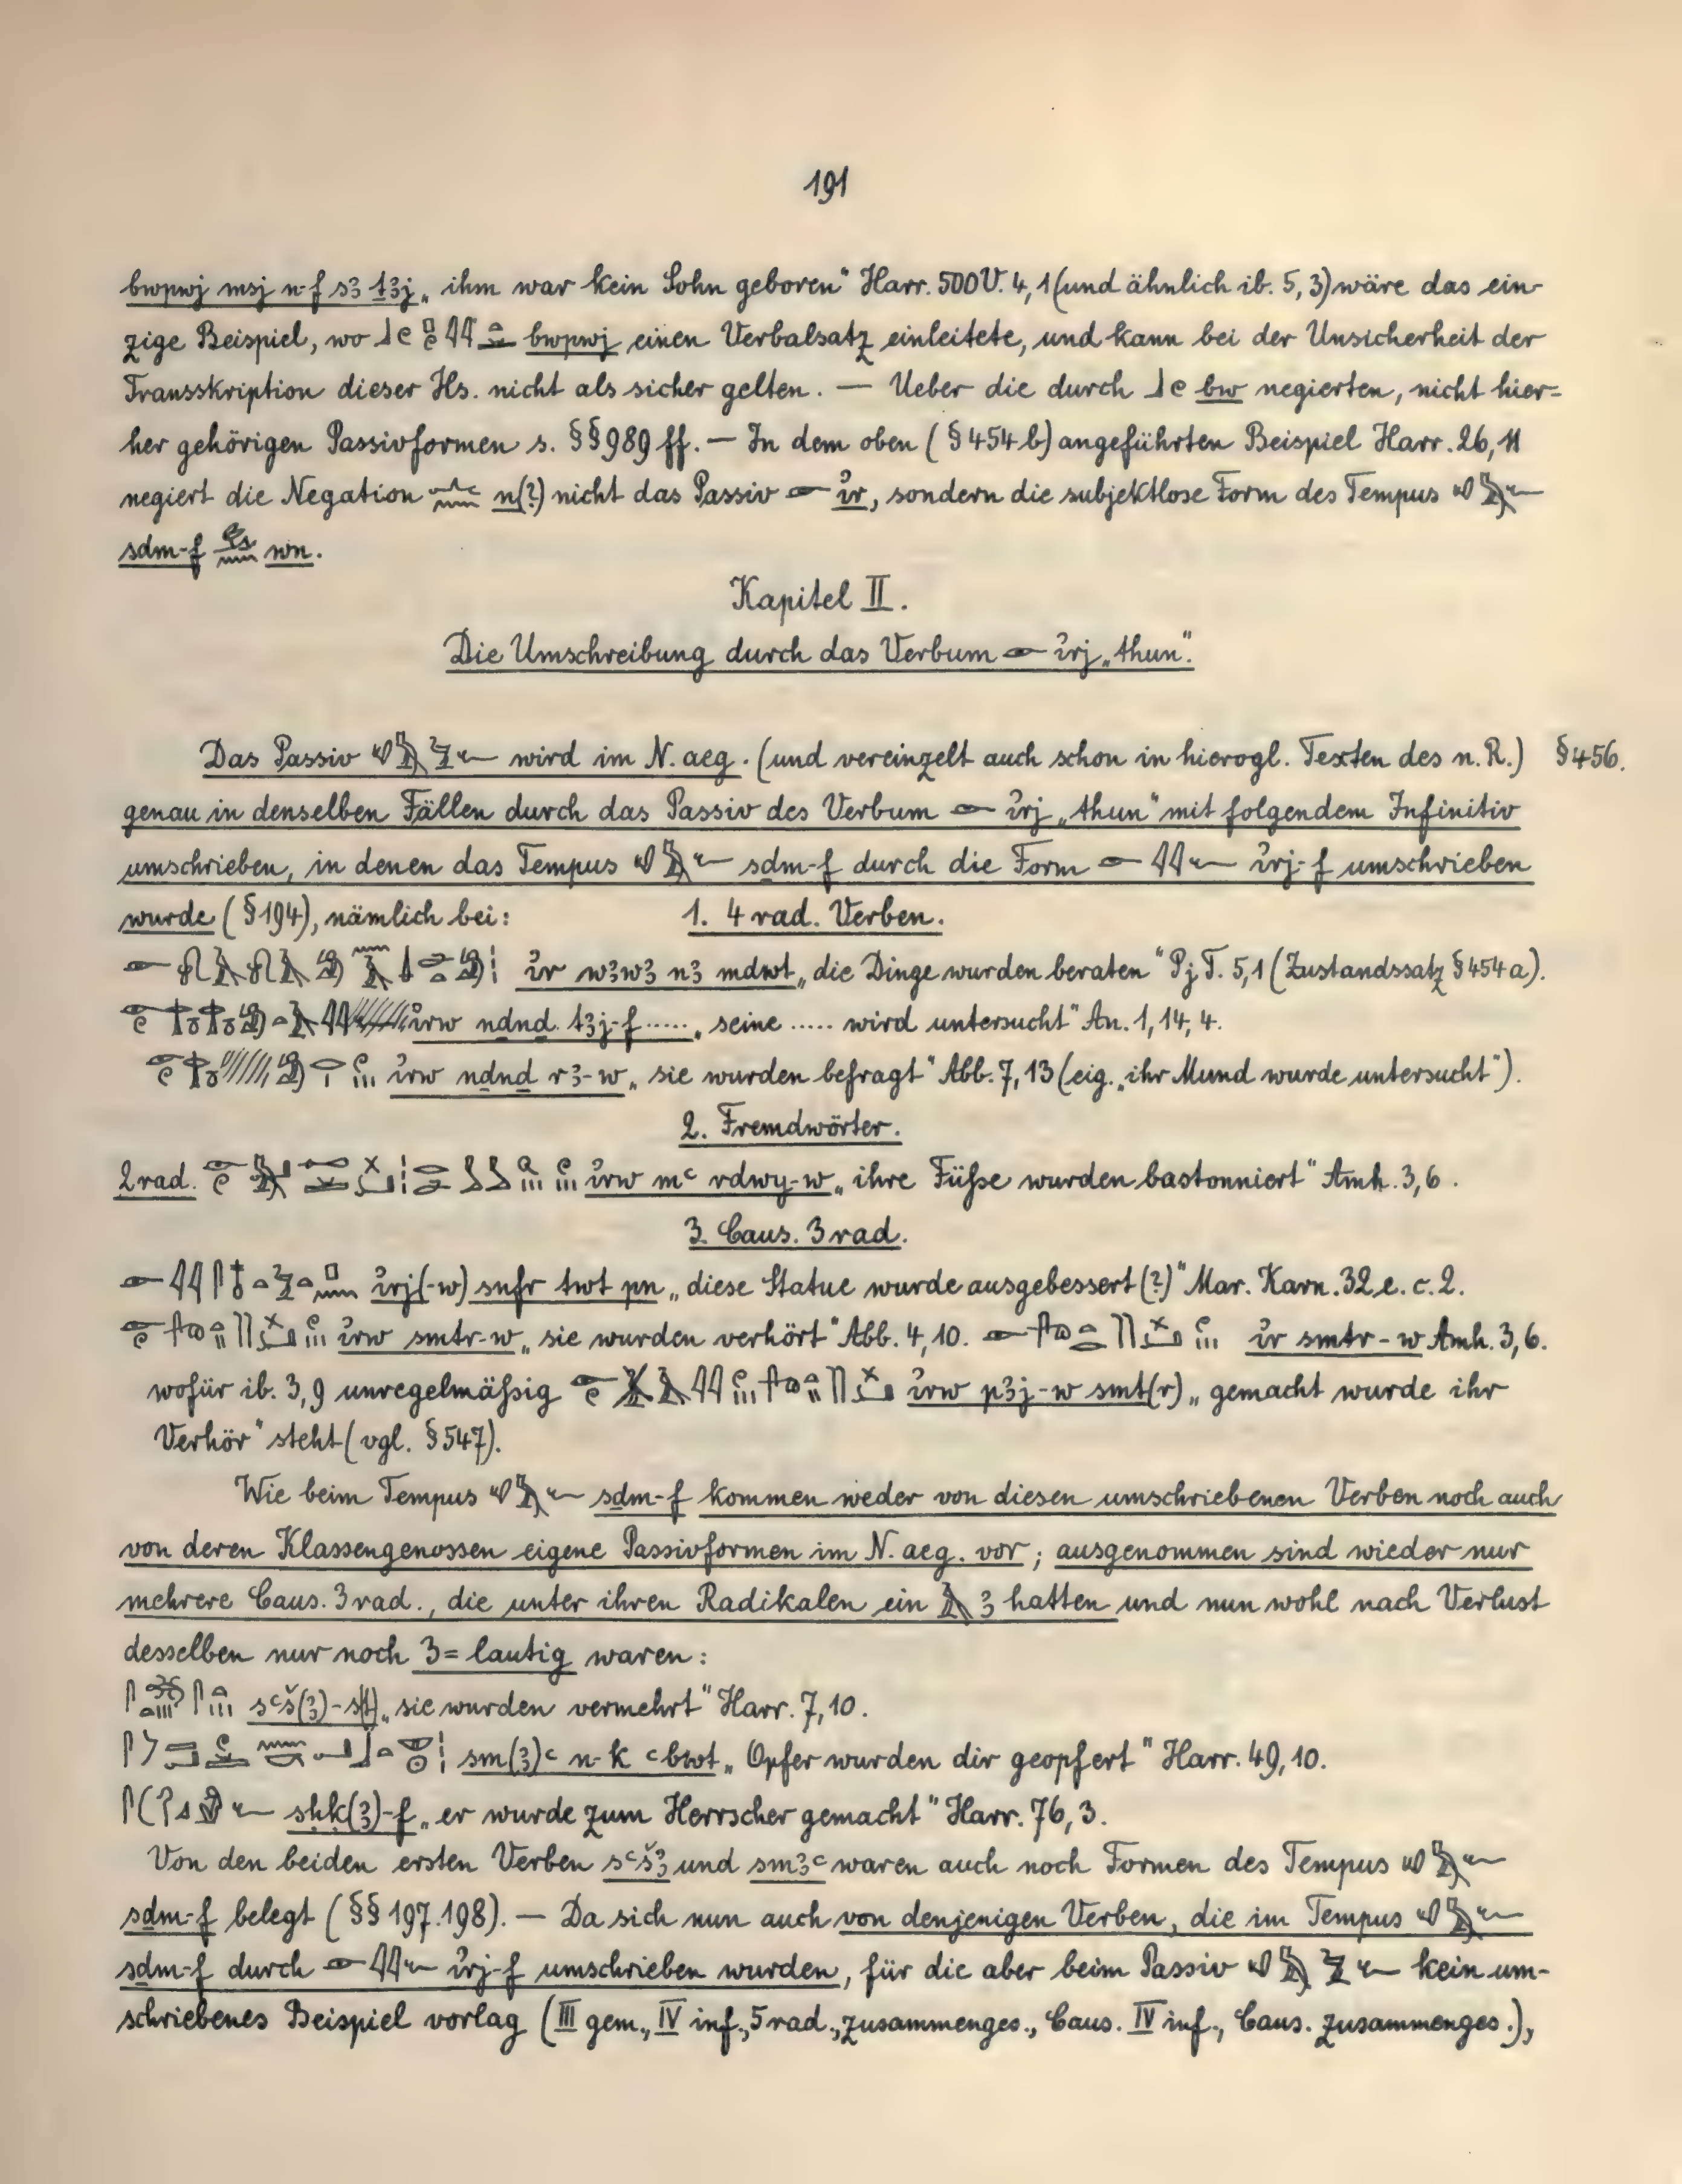 191
bwpwj msj n-f s3 ṯ3j „ihm war kein Sohn geboren“ Harr. 500 V. 4, 1 (und ähnlich ib. 5, 3) wäre das ein-
zige Beispiel, wo bwpwj einen Verbalsatz einleitete, und kann bei der Unsicherheit der
Transskription dieser Hs. nicht als sicher gelten. — Ueber die durch bw negierten, nicht hier=
her gehörigen Passivformen s. §§ 989 ff. — In dem oben (§ 454 b) angeführten Beispiel Harr. 26, 11
negiert die Negation n(?) nicht das Passiv ỉr, sondern die subjektlose Form des Tempus
sḏm-f wn.
Kapitel II.
Die Umschreibung durch das Verbum ỉrj „thun“.
Das Passiv wird im N. aeg. (und vereinzelt auch schon in hierogl. Texten des n. R.) § 456.
genau in denselben Fällen durch das Passiv des Verbum ỉrj „thun“ mit folgendem Infinitiv
umschrieben, in denen das Tempus sḏm-f durch die Form ỉrj-f umschrieben
wurde (§ 194), nämlich bei: 1. 4 rad. Verben.
ỉr w3w3 n3 mdwt „die Dinge wurden beraten“ Pj T. 5, 1 (Zustandssatz § 454 a).
ỉrw nḏnḏ t3j-f ..... „seine ..... wird untersucht“ An. 1, 14, 4.
ỉrw nḏnḏ r3-w „sie wurden befragt“ Abb. 7, 13 (eig. „ihr Mund wurde untersucht“).
2. Fremdwörter.
2 rad. ỉrw mꜥ rdwy-w „ihre Füße wurden bastonniert“ Amh. 3, 6.
3. Caus. 3 rad.
ỉrj(-w) snfr twt pn „diese Statue wurde ausgebessert (?)“ Mar. Karn. 32 e. c. 2.
ỉrw smtr-w „sie wurden verhört“ Abb. 4, 10. ỉr smtr-w Amh. 3, 6.
wofür ib. 3, 9 unregelmäßig ỉrw p3j-w smt(r) „gemacht wurde ihr
Verhör“ steht (vgl. § 547).
Wie beim Tempus sḏm-f kommen weder von diesen umschriebenen Verben noch auch
von deren Klassengenossen eigene Passivformen im N. aeg. vor; ausgenommen sind wieder nur
mehrere Caus. 3 rad., die unter ihren Radikalen ein 3 hatten und nun wohl nach Verlust
desselben nur noch 3=lautig waren:
sꜥš(3)-s(t) „sie wurden vermehrt“ Harr. 7, 10.
sm(3)ꜥ n-k ꜥbwt „Opfer wurden dir geopfert“ Harr. 49, 10.
sḥḳ(3)-f „er wurde zum Herrscher gemacht“ Harr. 76, 3.
Von den beiden ersten Verben sꜥš3 und sm3ꜥ waren auch noch Formen des Tempus
sḏm-f belegt (§§ 197. 198). — Da sich nun auch von denjenigen Verben, die im Tempus
sḏm-f durch ỉrj-f umschrieben wurden, für die aber beim Passiv kein um-
schriebenes Beispiel vorlag (III gem., IV inf., 5 rad., zusammenges., Caus. IV inf., Caus. zusammenges.),